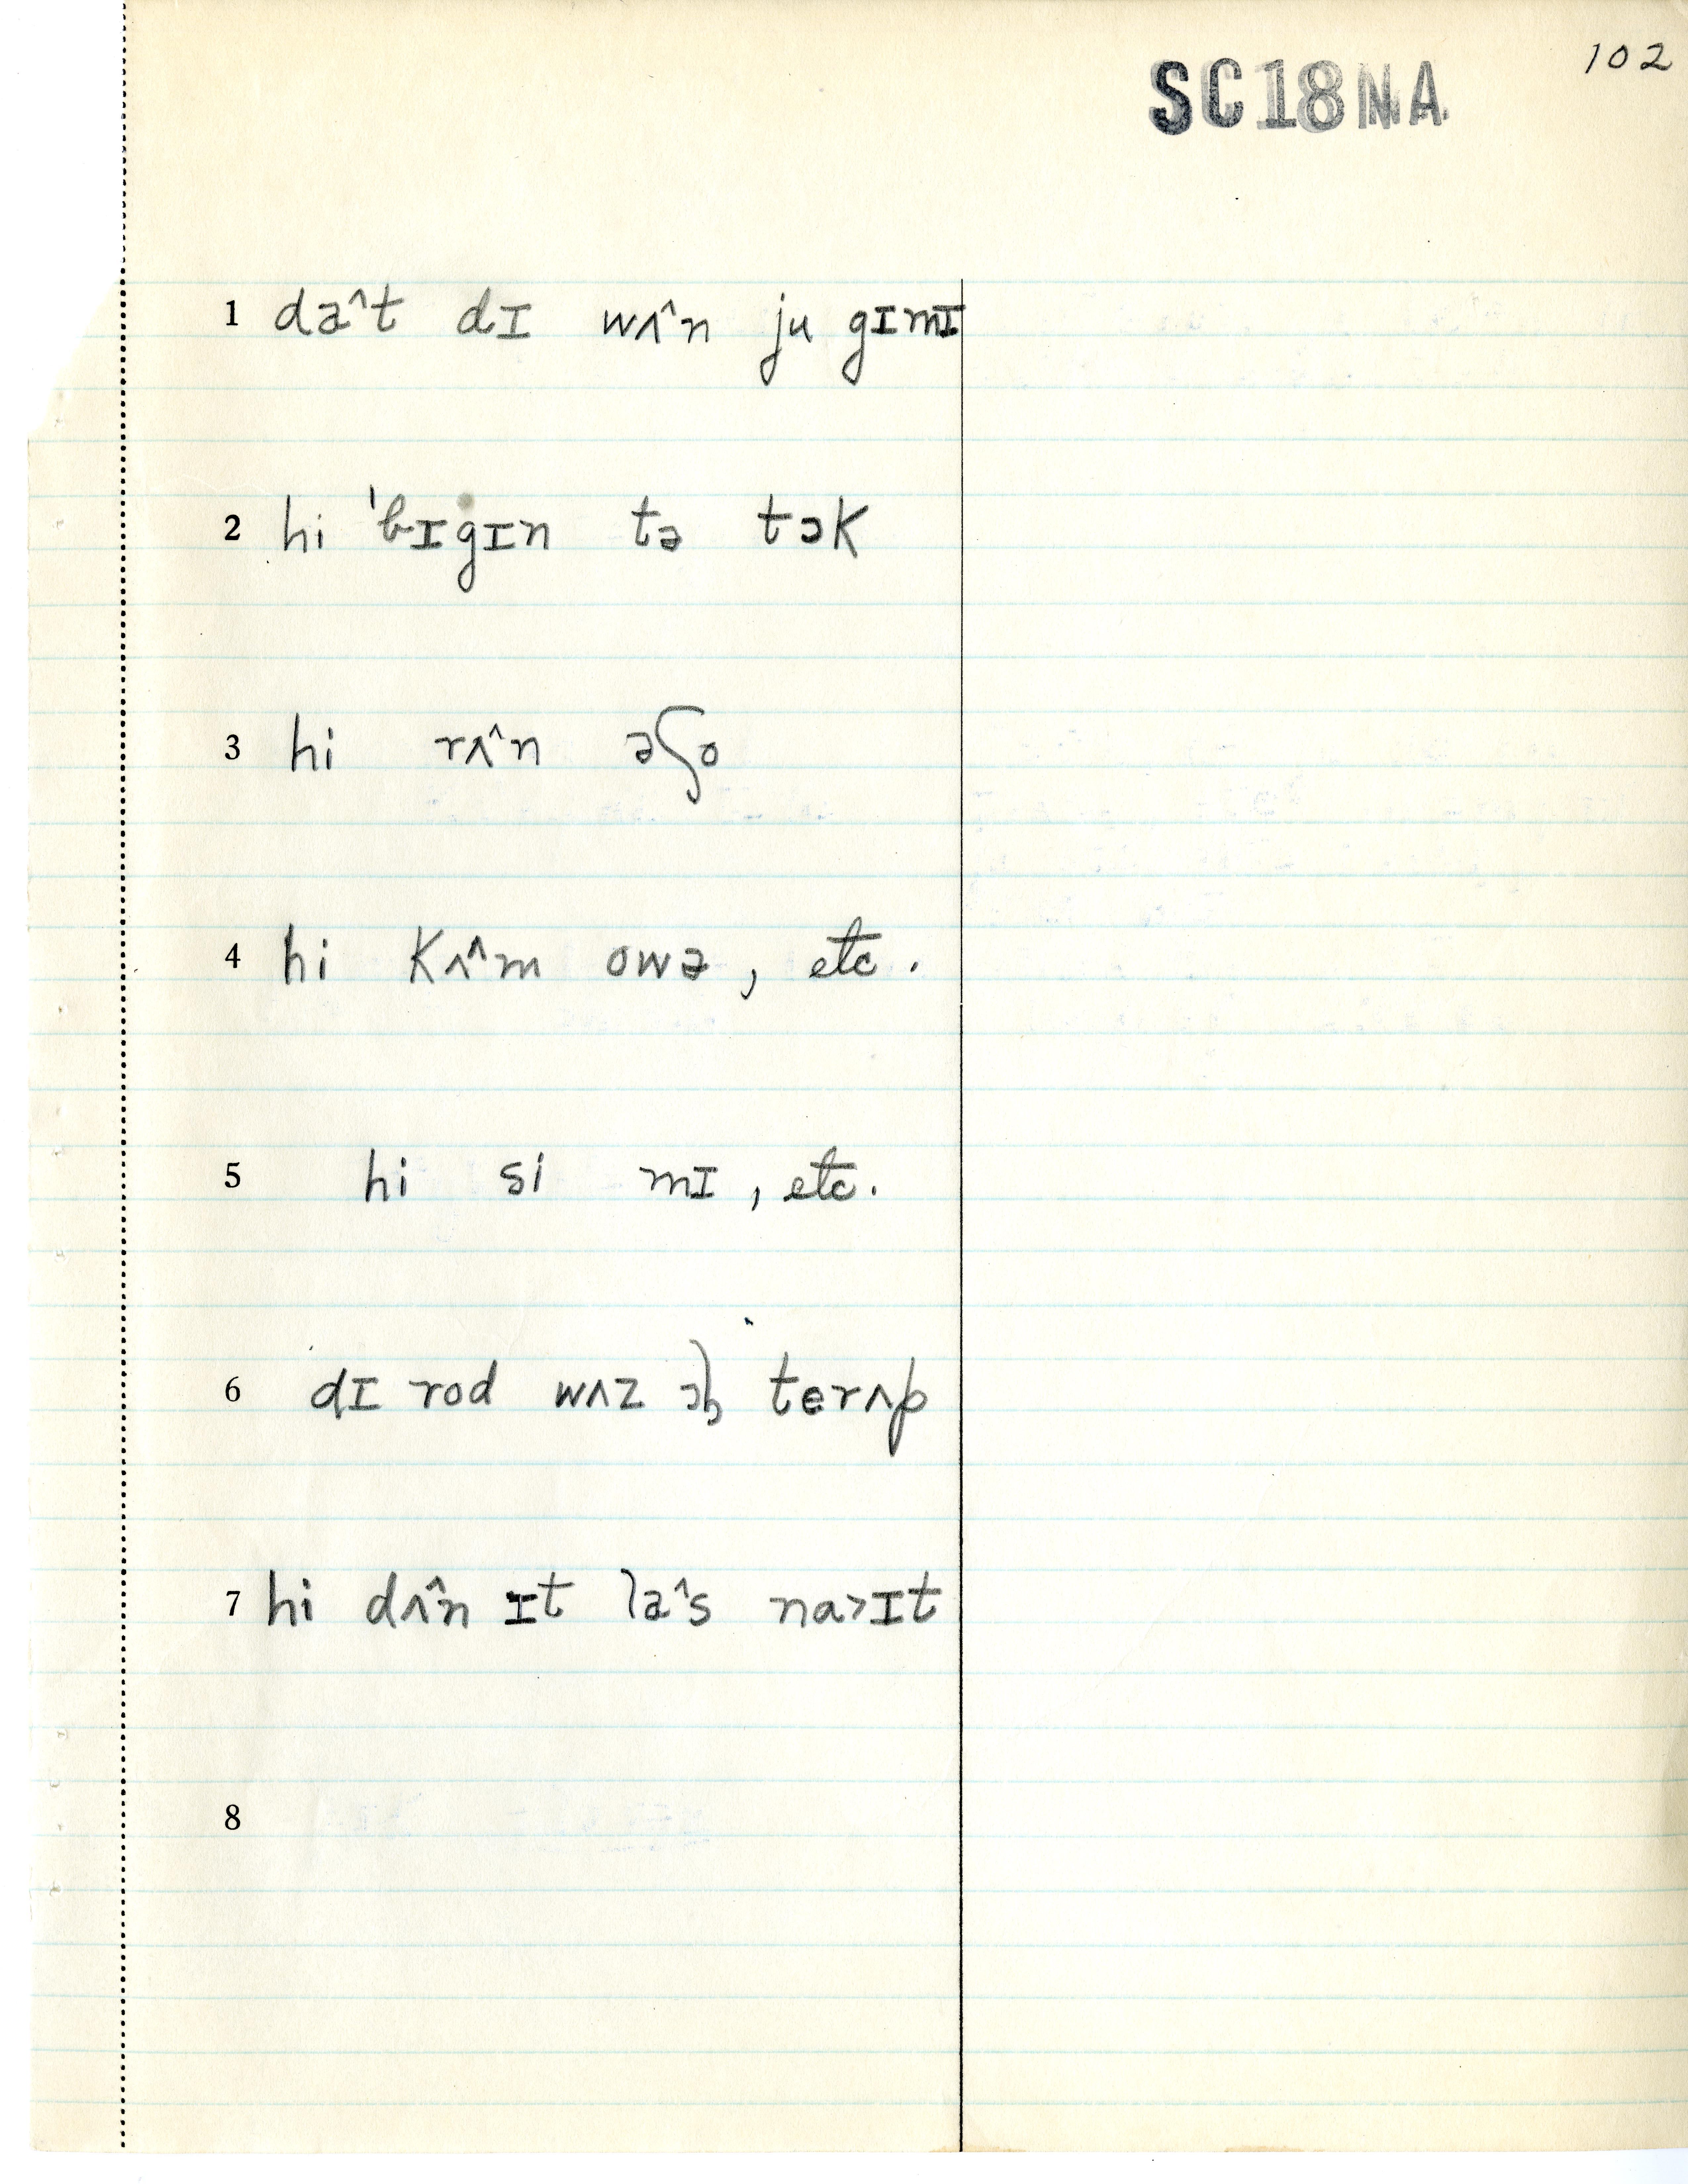 102
SC18NA
1 da^t dɪ wʌ^n ju gɪmɪ
2 hi ˈbɪgɪn tə tɔk
3 hi rʌ^n əʃo
4 hi kʌ^m owə, etc.
5 hi si mɪ, etc.
6 dɪ rod wʌz ɔl terʌp
7 hi dʌ^n ɪt la^s na>ɪt
8